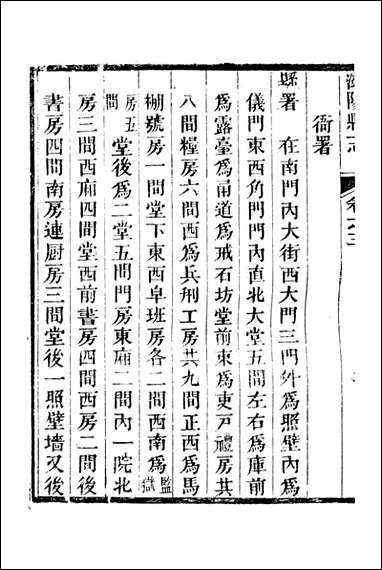 縣志 卷之三
衙署
縣署 在南門內大街西大門三門外為照壁內為
儀門東西角門門內直北大堂五間左右為庫前
為露臺為甬道為戒石坊堂前東為吏戶禮房共
八間糧房六間西為兵刑工房共九間正西為馬
棚號房一間堂下東西皁班房各二間西南為監獄
房五間堂後為二堂五間門房東廂二間內一院北
房三間西廂四間堂西前書房四間西房二間後
書房四間南房連厨房三間堂後一照壁墻又後